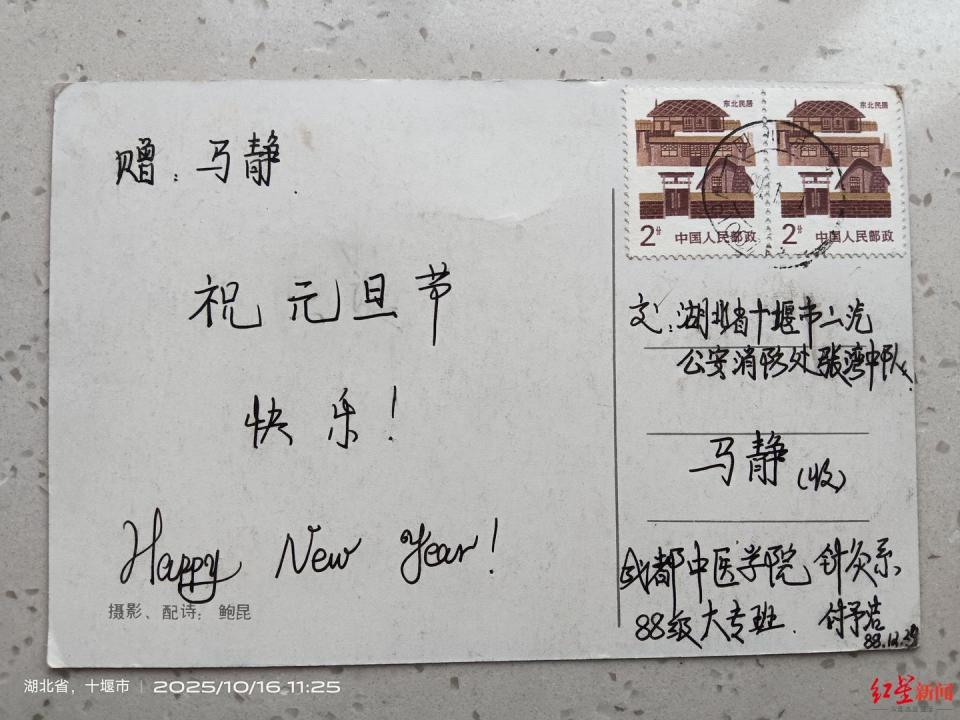 赠：马静．
祝元旦节
快乐！
Happy New Year!
摄影、配诗：鲍昆
东北民居
东北民居
2分 中国人民邮政
2分 中国人民邮政
交：湖北省十堰市二汽
公安消防处张湾中队
马静（收）
成都中医学院 针灸系
88级大专班．付予
88.12.
湖北省，十堰市 | 2025/10/16 11:25
红星新闻